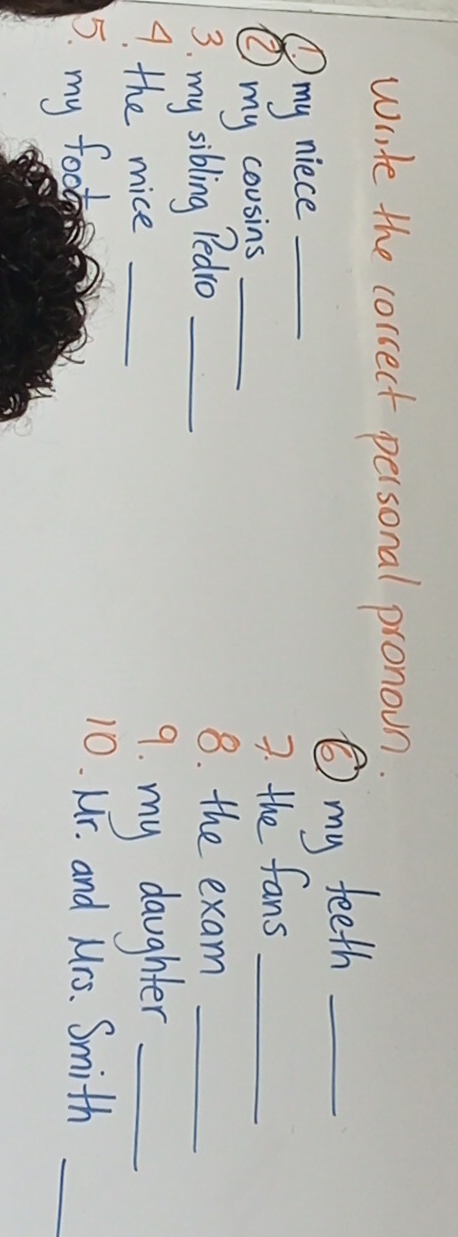 Write the correct personal pronoun.
1. my niece ____
2. my cousins ____
3. my sibling Pedro ____
4. the mice ____
5. my foot
6. my teeth ____
7. the fans ____
8. the exam ____
9. my daughter ____
10. Mr. and Mrs. Smith ____